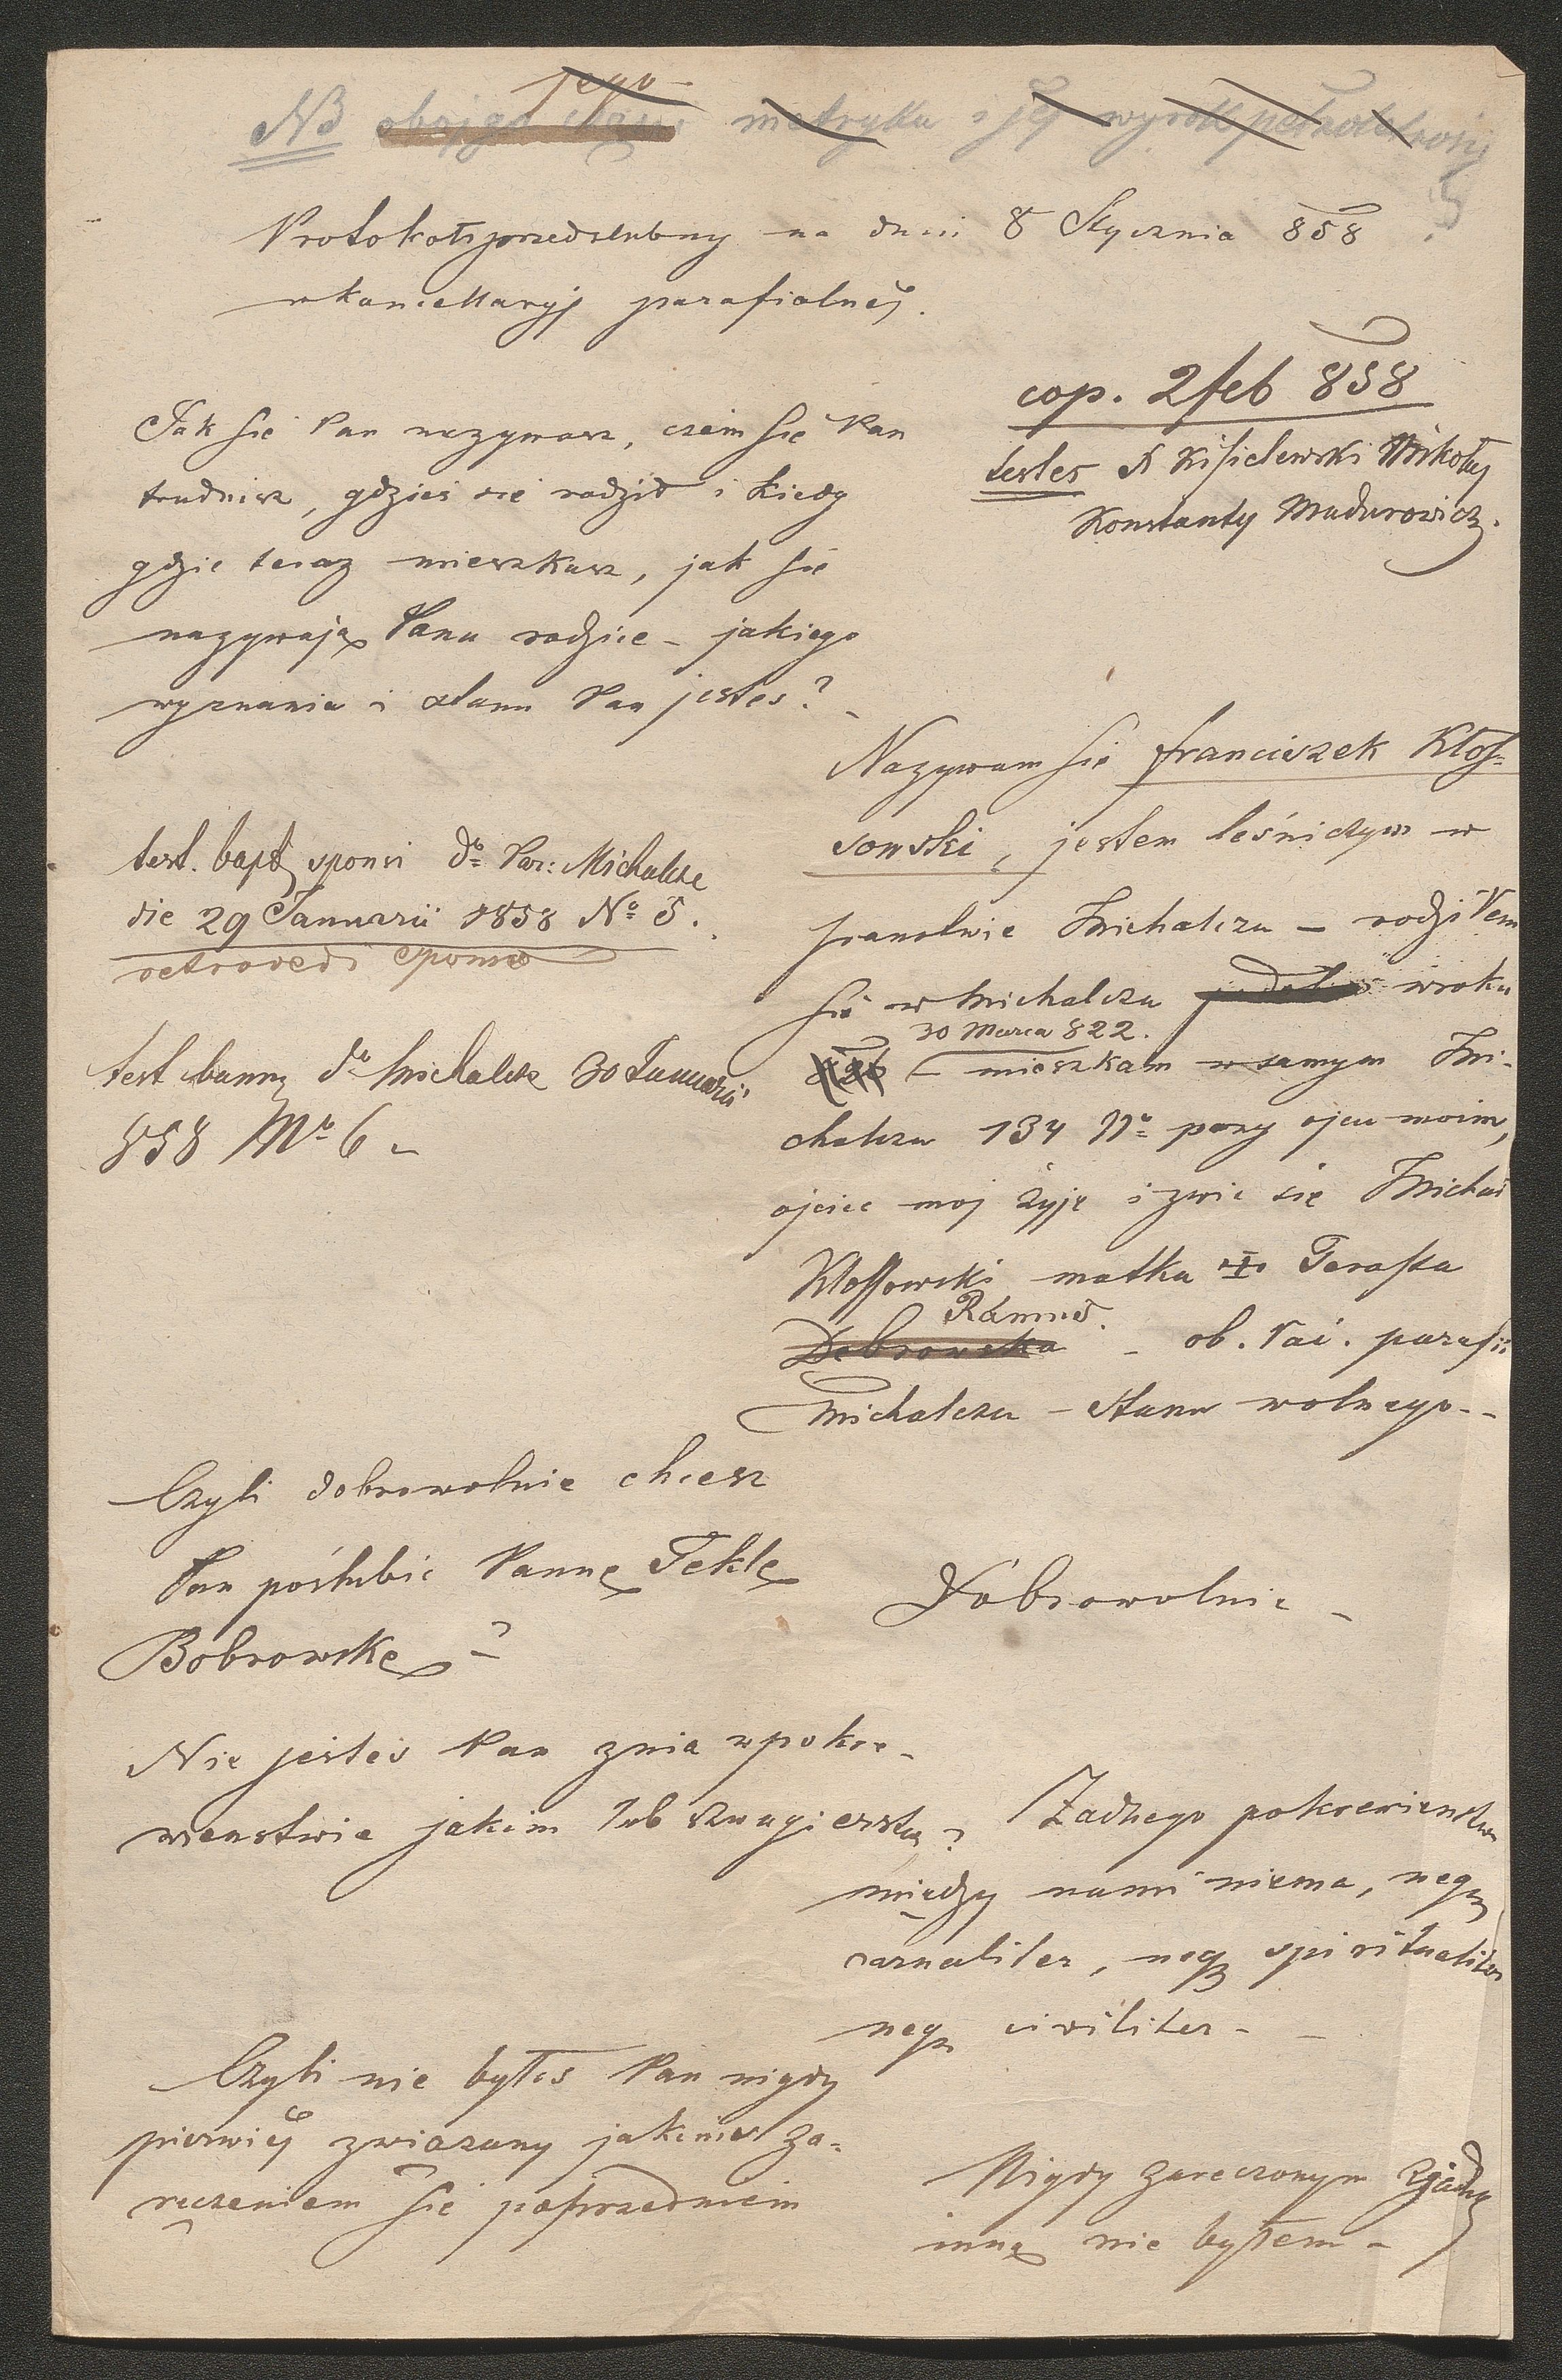 jego
NB obojga metryka i jej wyrok
Protokoł przedslubny na dniu 8 Stycznia 858
w kancellaryj parafialnej.
cop. 2 feb 858
testes Kisielewski Mikołaj
Konstanty Madurowicz.
Jak sie Pan nazywasz, czem sie Pan
trudnisz, gdzies sie rodził i kiedy
gdzie teraz mieszkasz, jak sie
nazywają Pana rodzice – jakiego
wyznania i stanu Pan jestes?
Nazywam sie Franciszek Kłos=
sowski, jestem leśniczym w
Michalczu – rodziłem
sie w Michalczu w roku
30 Marca 822.
826 – mieszkam w samym Mi-
chalczu 134 No przy ojcu moim,
ojciec moj żyje i zwie się Michał
Klossowski matka
Dobrowska – ob. łać. parafii
Michalczu – stanu wolnego. -
test. bapt. sponsi do Par: Michalcze
die 29 Januarii 1858 No 5.
retrodedi sponso
test. bann. do Michalcze 30 Januarii
858 No 6 –
Czyli dobrowolnie chcesz
Pan poślubic Pannę Teklę
Bobrowskę ?
Dobrowolnie –
Nie jesteś Pan z nia w pokre-
wienstwie jakim lub szwagierstw ?
Żadnego pokrewienstwa
między nami niema, neq
carnaliter, neq spiritualiter
neq civiliter - -
Czyli nie byłes Pan nigdy
pierwiej zwiazany jakimes za=
ręczeniem sie poprzedniem
Nigdy zareczonym z żadną
inną nie byłem –